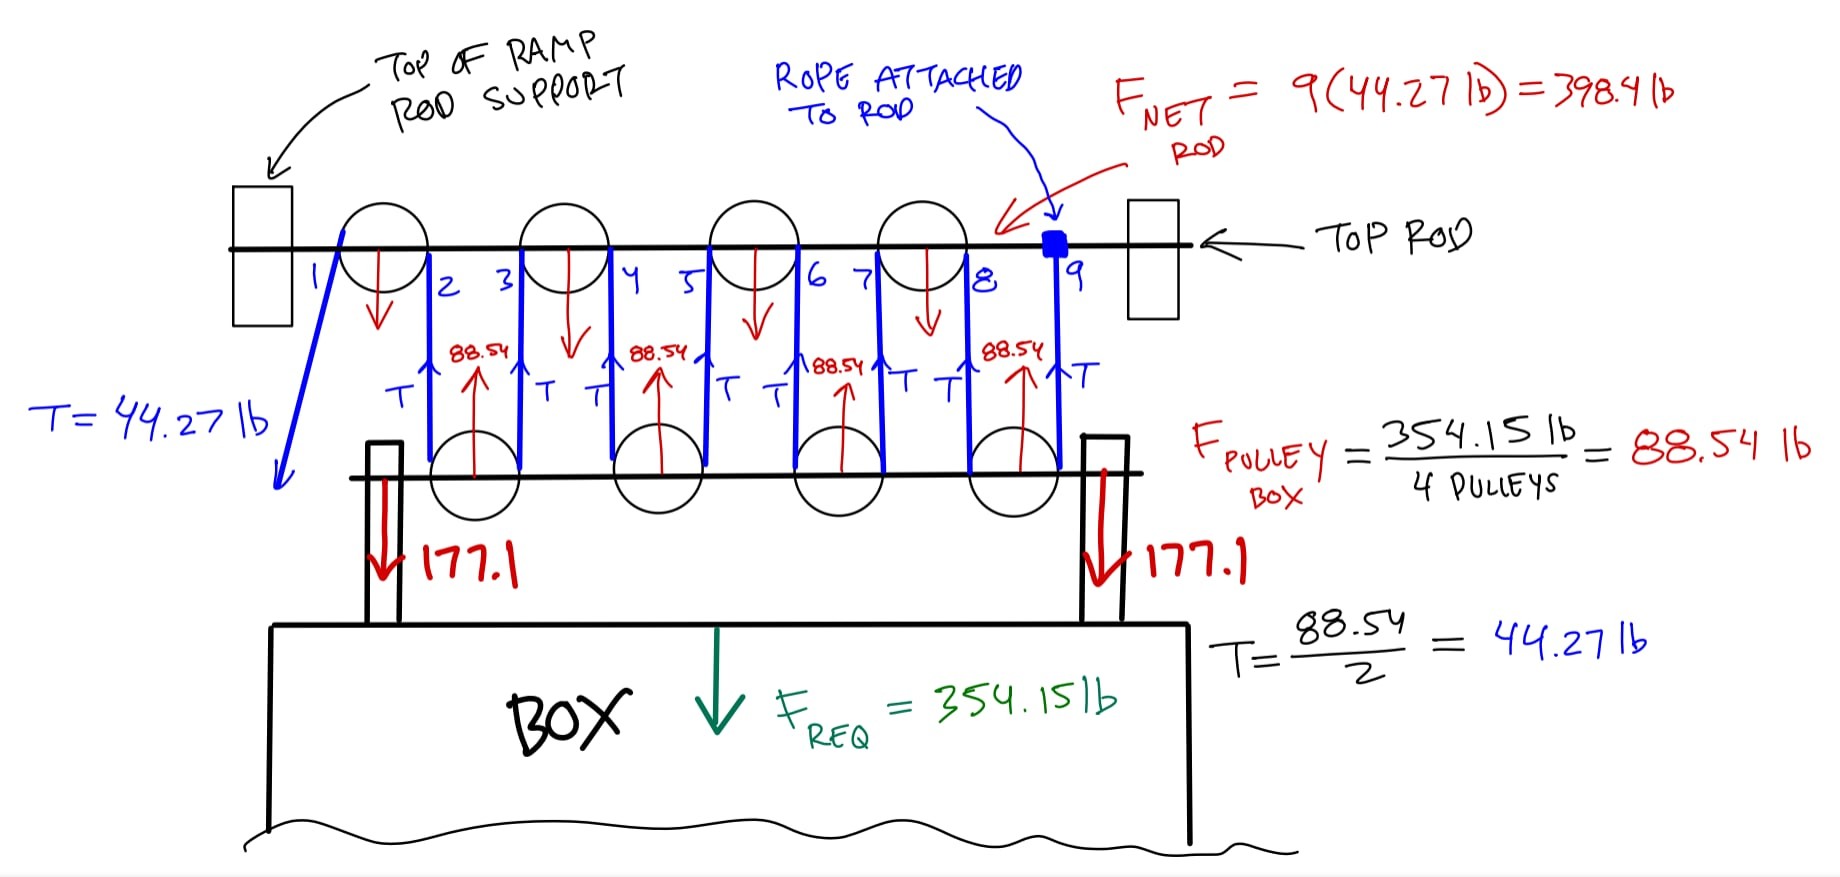 TOP OF RAMP
ROD SUPPORT
ROPE ATTACHED
TO ROD
F_NET ROD = 9(44.27 lb) = 398.4 lb
TOP ROD
1
2
3
4
5
6
7
8
9
88.54
88.54
88.54
88.54
T
T
T
T
T
T
T
T
T = 44.27 lb
F_PULLEY BOX = 354.15 lb / 4 PULLEYS = 88.54 lb
177.1
177.1
T = 88.54 / 2 = 44.27 lb
BOX
F_REQ = 354.15 lb